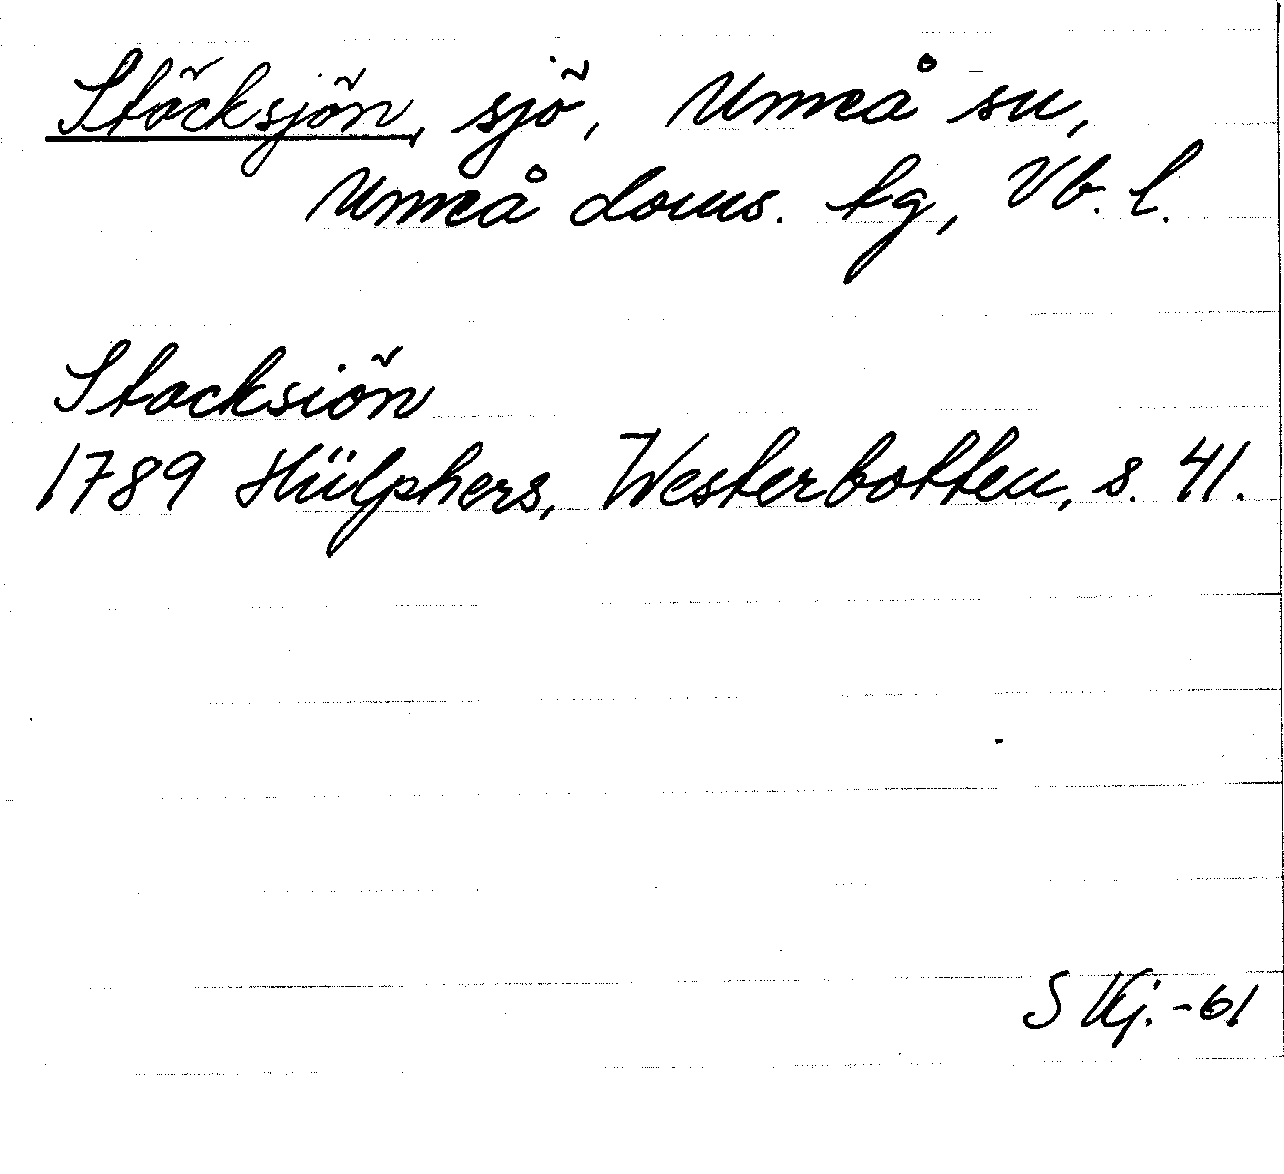 Stöcksjön, sjö, Umeå sn,
Umeå doms. tg, Vb. l.
Stocksiön
1789 Hülphers, Westerbotten, s. 41.
S Kj. -61